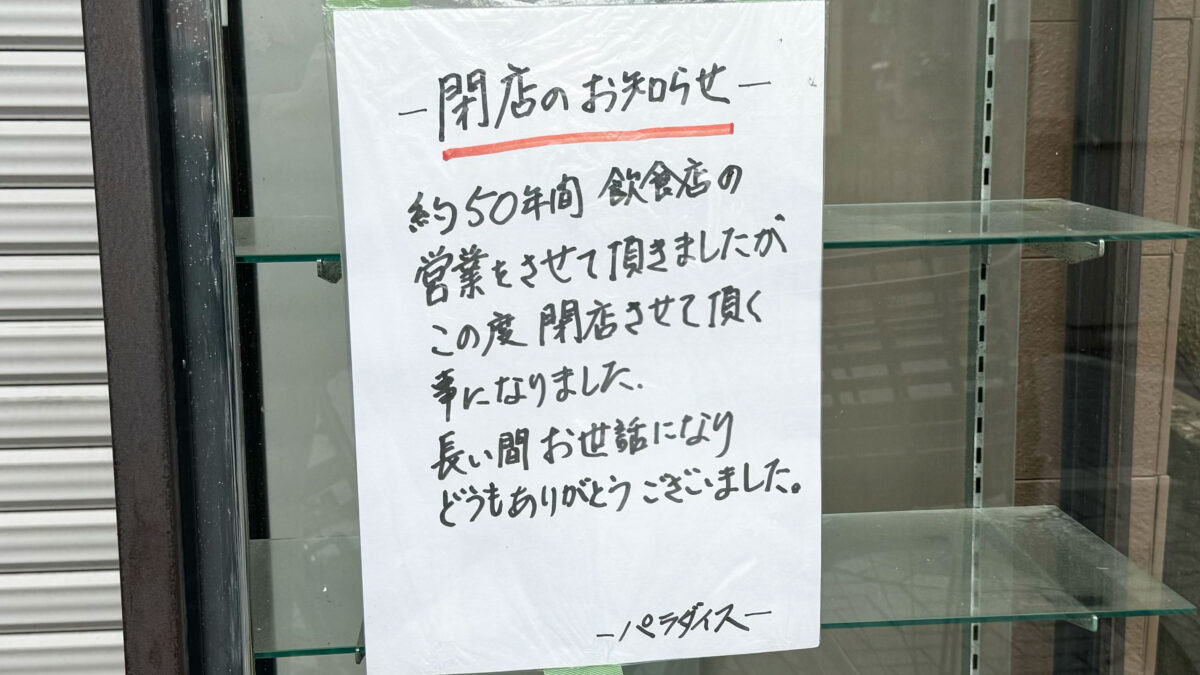 －閉店のお知らせ－
約50年間 飲食店の
営業をさせて頂きましたが
この度 閉店させて頂く
事になりました.
長い間 お世話になり
どうもありがとうございました。
－パラダイス－